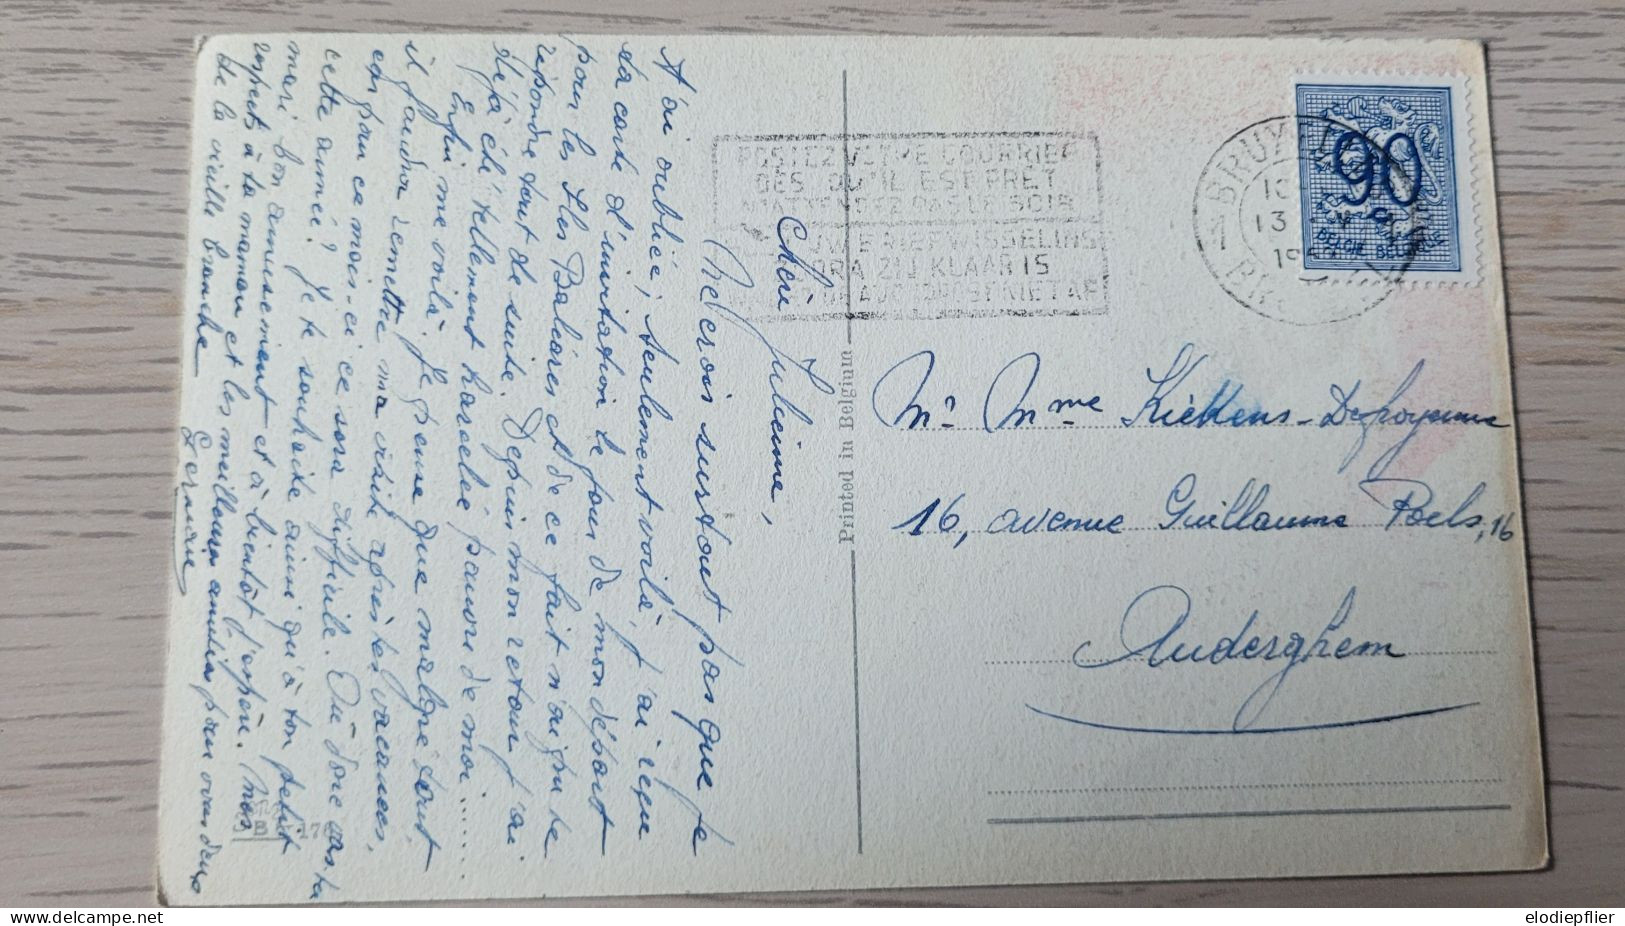 Chère Julienne,
Ne crois surtout pas que je
t'ai oubliée, seulement voilà, j'ai reçu
ta carte d'invitation le jour de mon départ
pour les Iles Baléares et de ce fait n'ai pu te
répondre tout de suite. Depuis mon retour j'ai
déjà été tellement harcelée pauvre de moi.......
Enfin me voilà. Je pense que malgré tout
il faudra remettre ma visite après les vacances,
car pour ce mois-ci ce sera difficile. Où donc vas-tu
cette année? Je te souhaite ainsi qu'à ton petit
mari bon amusement et à bientôt j'espère. Mes
respects à ta maman et les meilleures amitiés pour vous deux
de la vieille branche
Germaine
Printed in Belgium
POSTEZ VOTRE COURRIER
DÈS QU'IL EST PRÊT
N'ATTENDEZ PAS LE SOIR
UW BRIEFWISSELING
ZODRA ZIJ KLAAR IS
WACHT DE AVOND NIET AF
BELGIE BELGIQUE
90
1
13
Mr Mme Kiekens-Defroyenne
16, avenue Guillaume Poels, 16
Auderghem
elodiepflier